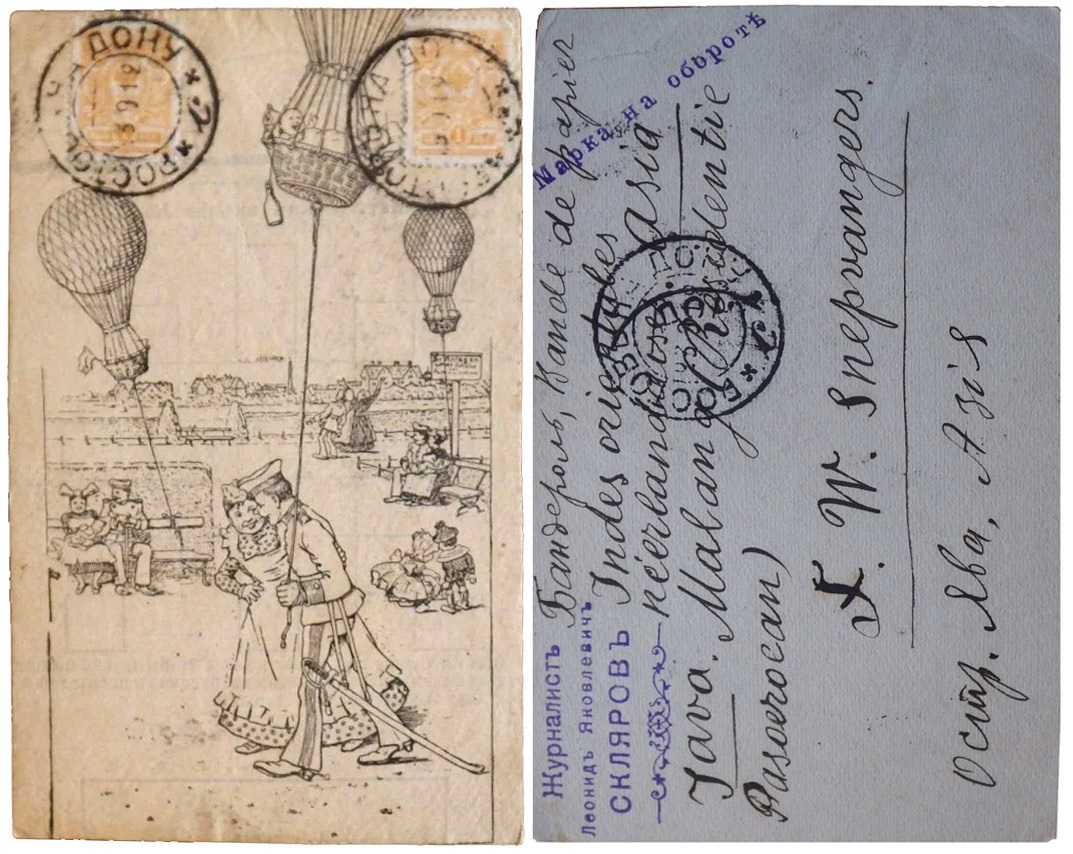 РОСТОВЪ НА ДОНУ
Марка на оборотѣ
Журналистъ
Леонидъ Яковлевичъ
СКЛЯРОВЪ
Бандероль, Bande de papier
Indes orientales
néerlandaises. Asia
Java. Malang (Residentie
Pasoeroean)
F. W. Snepvangers.
Остр. Ява, Азія